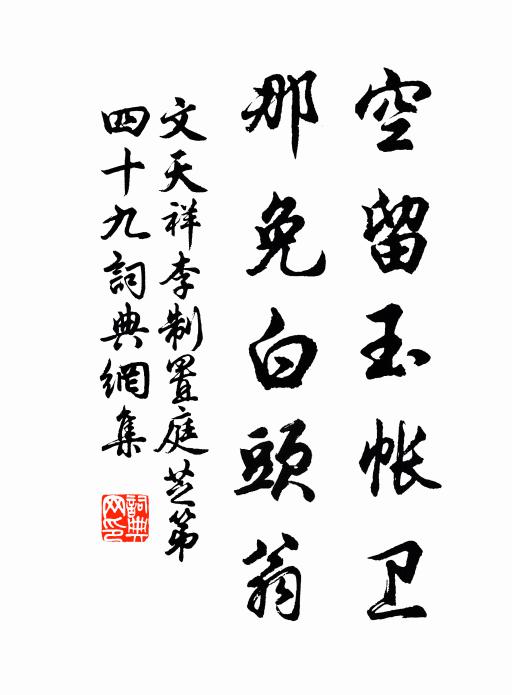 空留玉帐卫
那免白頭翁
文天祥李制置庭芝第
四十九詞典網集
詞典
网印